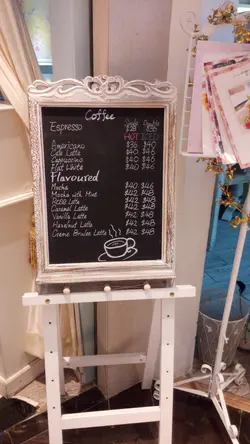 Coffee
Single Double
Espresso $28 $36
HOT ICED
Americano $36 $40
Cafe Latte $40 $46
Cappuccino $40 $46
Flat White $40 $46
Flavoured
Mocha $40 $46
Mocha with Mint $42 $48
Rose Latte $42 $48
Caramel Latte $42 $48
Vanilla Latte $42 $48
Hazelnut Latte $42 $48
Creme Brulee Latte $42 $48